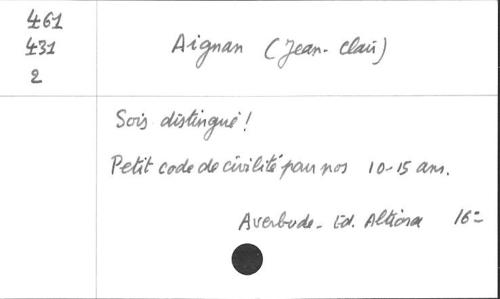 461
431
2
Aignan (Jean-Clair)
Sois distingué!
Petit code de civilité pour nos 10-15 ans.
Averbode - Ed. Altiora 16=